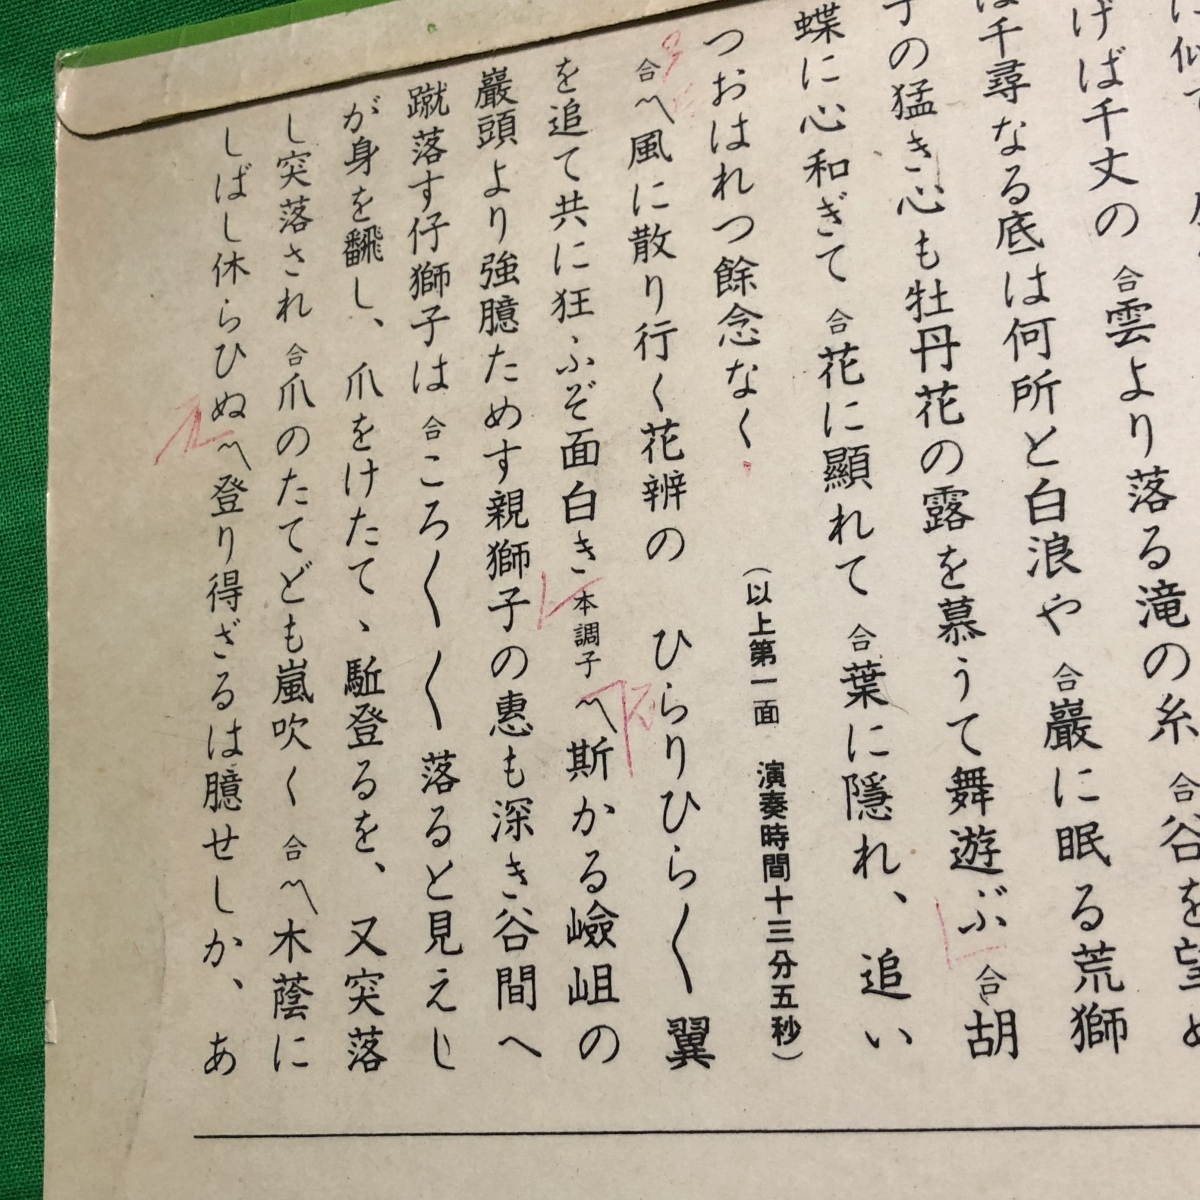 に似て
げば千丈の 合 雲より落る滝の糸 合 谷を望め
は千尋なる底は何所と白浪や 合 巖に眠る荒獅
子の猛き心も牡丹花の露を慕うて舞遊ぶ 合 胡
蝶に心和ぎて 合 花に顯れて 合 葉に隱れ、追い
つおはれつ餘念なく
(以上第一面 演奏時間十三分五秒)
合〽風に散り行く花辨の ひらりひら〱翼
を追て共に狂ふぞ面白き 本調子〽斯かる嶮岨の
巖頭より強臆ためす親獅子の惠も深き谷間へ
蹴落す仔獅子は 合 ころ〱〱落ると見えし
が身を飜し、爪をけたて、駈登るを、又突落
し突落され 合 爪のたてども嵐吹く 合〽木蔭に
しばし休らひぬ〽登り得ざるは臆せしか、あ